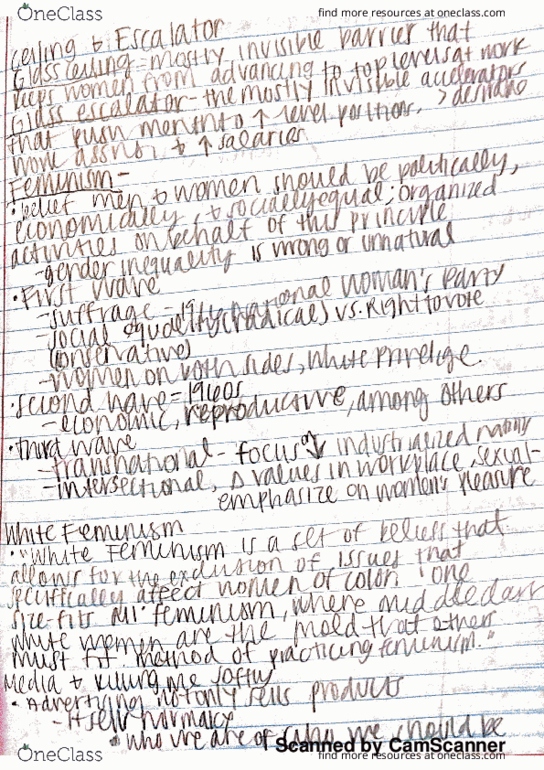 OneClass
find more resources at oneclass.com
ceiling & Escalator
Glass ceiling = mostly invisible barrier that
keeps women from advancing to top levels at work
Glass escalator - the mostly invisible accelerators
that push men into ↑ level positions, > desirable
work assns, & ↑ salaries
Feminism -
• belief men & women should be politically,
economically, & socially equal; organized
activities on behalf of this principle
- gender inequality is wrong or unnatural
• First wave
- suffrage - national woman's Party
- social equality (radical) vs. Right to vote
(conservative)
- women on both sides, white privelige
• second wave - 1960s
- economic, reproductive, among others
• third wave
- transnational - focus on ↓ industrialized nations
- intersectional, Δ values in workplace, sexual-
emphasize on women's pleasure
White Feminism
• "White Feminism is a set of beliefs that
allows for the exclusion of issues that
specifically affect women of color. 'one
size-fits all' feminism, where middle class
white women are the mold that others
must fit. method of practicing feminism."
Media & Killing me softly
• Advertising not only sells products
- It sells normalcy
who we are or who we should be
Scanned by CamScanner
OneClass
find more resources at oneclass.com